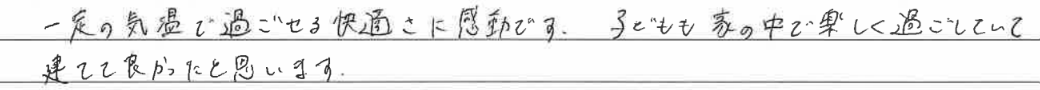 一定の気温で過ごせる快適さに感動です. 子どもも家の中で楽しく過ごしていて
建てて良かったと思います.